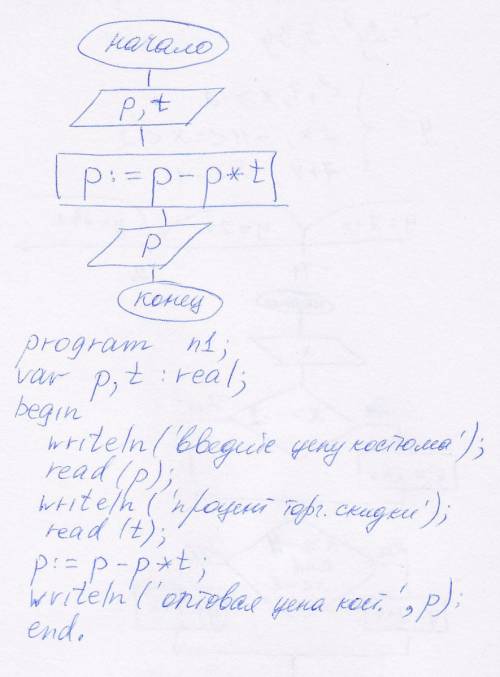 начало
p, t
p := p - p * t
p
конец
program n1;
var p, t : real;
begin
writeln ('введите цену костюма');
read (p);
writeln ('процент торг. скидки');
read (t);
p := p - p * t;
writeln ('оптовая цена кост.', p);
end.